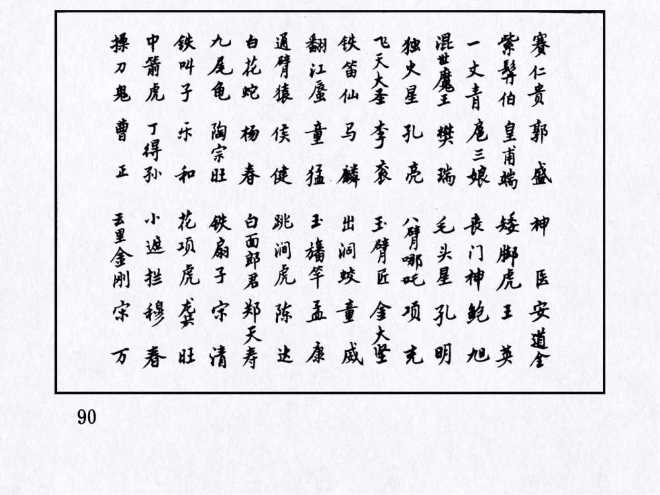 赛仁贵 郭盛 神医 安道全
紫髯伯 皇甫端 矮脚虎 王英
一丈青 扈三娘 丧门神 鲍旭
混世魔王 樊瑞 毛头星 孔明
独火星 孔亮 八臂哪吒 项充
飞天大圣 李衮 玉臂匠 金大坚
铁笛仙 马麟 出洞蛟 童威
翻江蜃 童猛 玉幡竿 孟康
通臂猿 侯健 跳涧虎 陈达
白花蛇 杨春 白面郎君 郑天寿
九尾龟 陶宗旺 铁扇子 宋清
铁叫子 乐和 花项虎 龚旺
中箭虎 丁得孙 小遮拦 穆春
操刀鬼 曹正 云里金刚 宋万
90